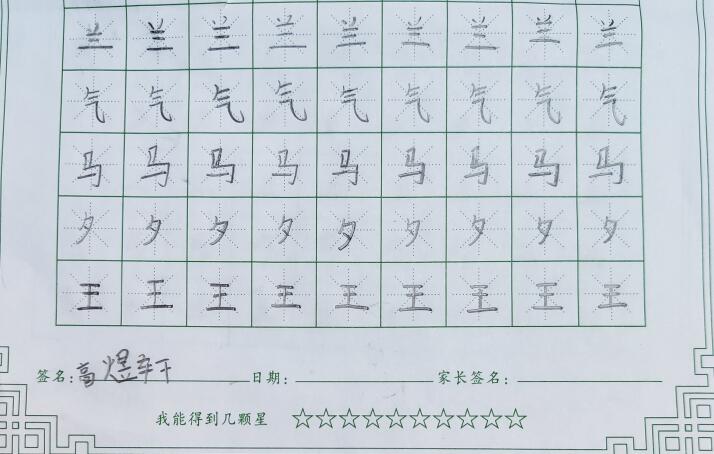 兰 兰 兰 兰 兰 兰 兰 兰 兰
气 气 气 气 气 气 气 气 气
马 马 马 马 马 马 马 马 马
夕 夕 夕 夕 夕 夕 夕 夕 夕
王 王 王 王 王 王 王 王 王
签名：高煜轩 日期： 家长签名：
我能得到几颗星 ☆☆☆☆☆☆☆☆☆☆